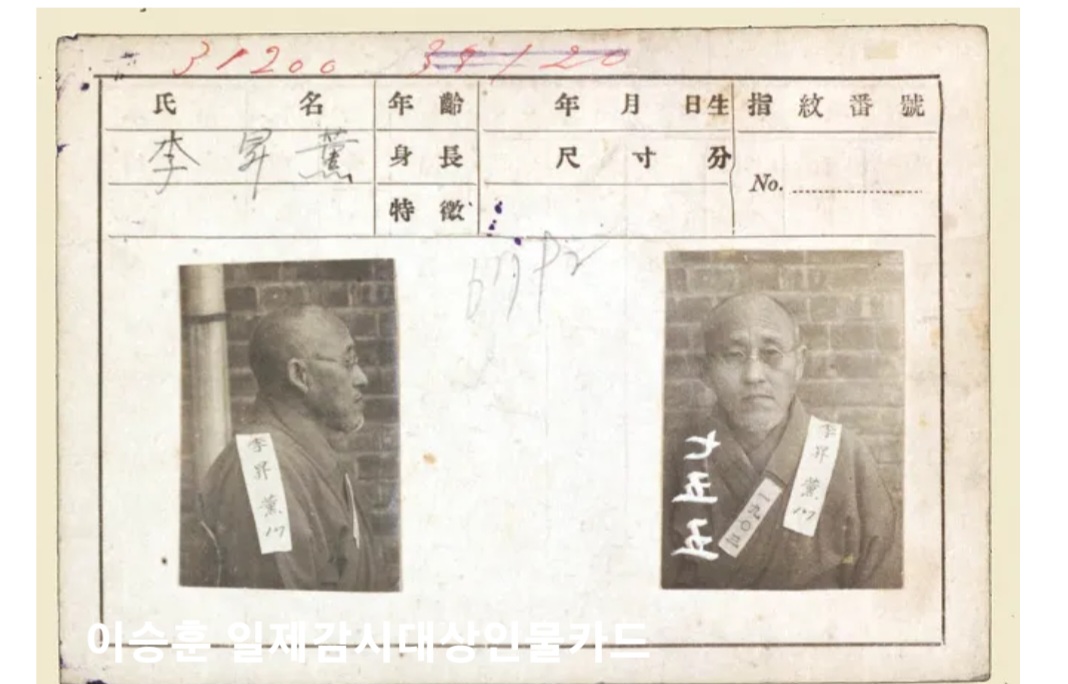 31200 39120
氏名 年齡 年月日生 指紋番號
李昇薰 身長 尺寸分
No.
特徵
李昇薰
李昇薰
七五五
一九〇三
이승훈 일제감시대상인물카드